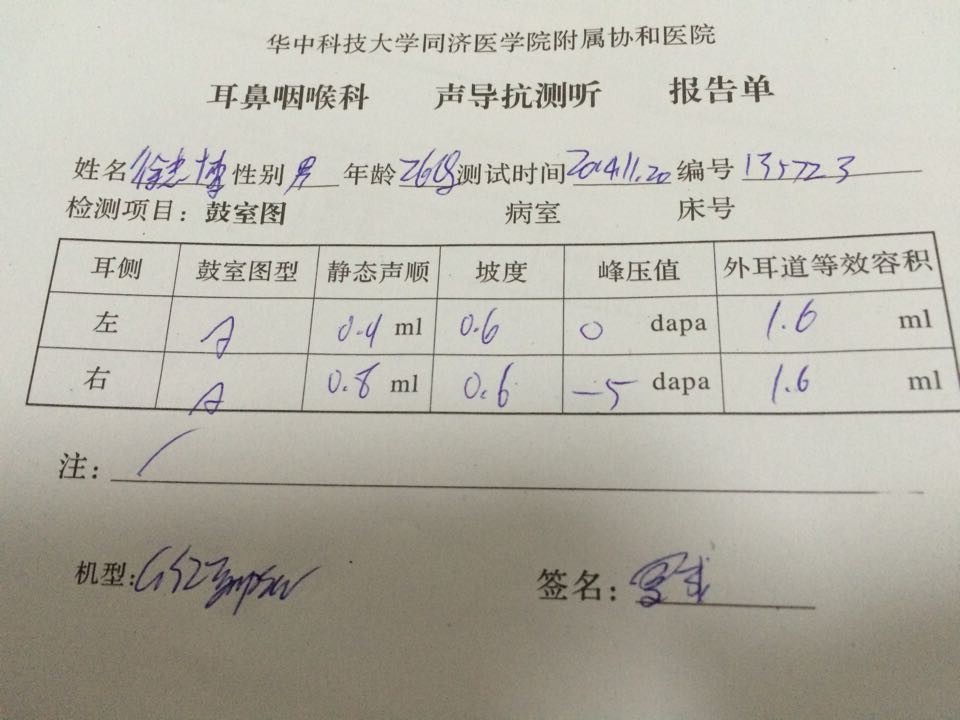 华中科技大学同济医学院附属协和医院
耳鼻咽喉科 声导抗测听 报告单
姓名 徐志博 性别 男 年龄 26岁 测试时间 2014.11.20 编号 135723
检测项目：鼓室图 病室 床号
耳侧 鼓室图型 静态声顺 坡度 峰压值 外耳道等效容积
左 A 0.4 ml 0.6 0 dapa 1.6 ml
右 A 0.8 ml 0.6 -5 dapa 1.6 ml
注： /
机型: 签名：